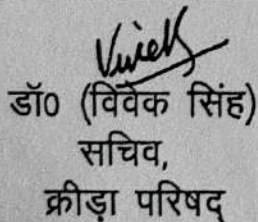 Vivek
डॉ0 (विवेक सिंह)
सचिव,
क्रीड़ा परिषद्